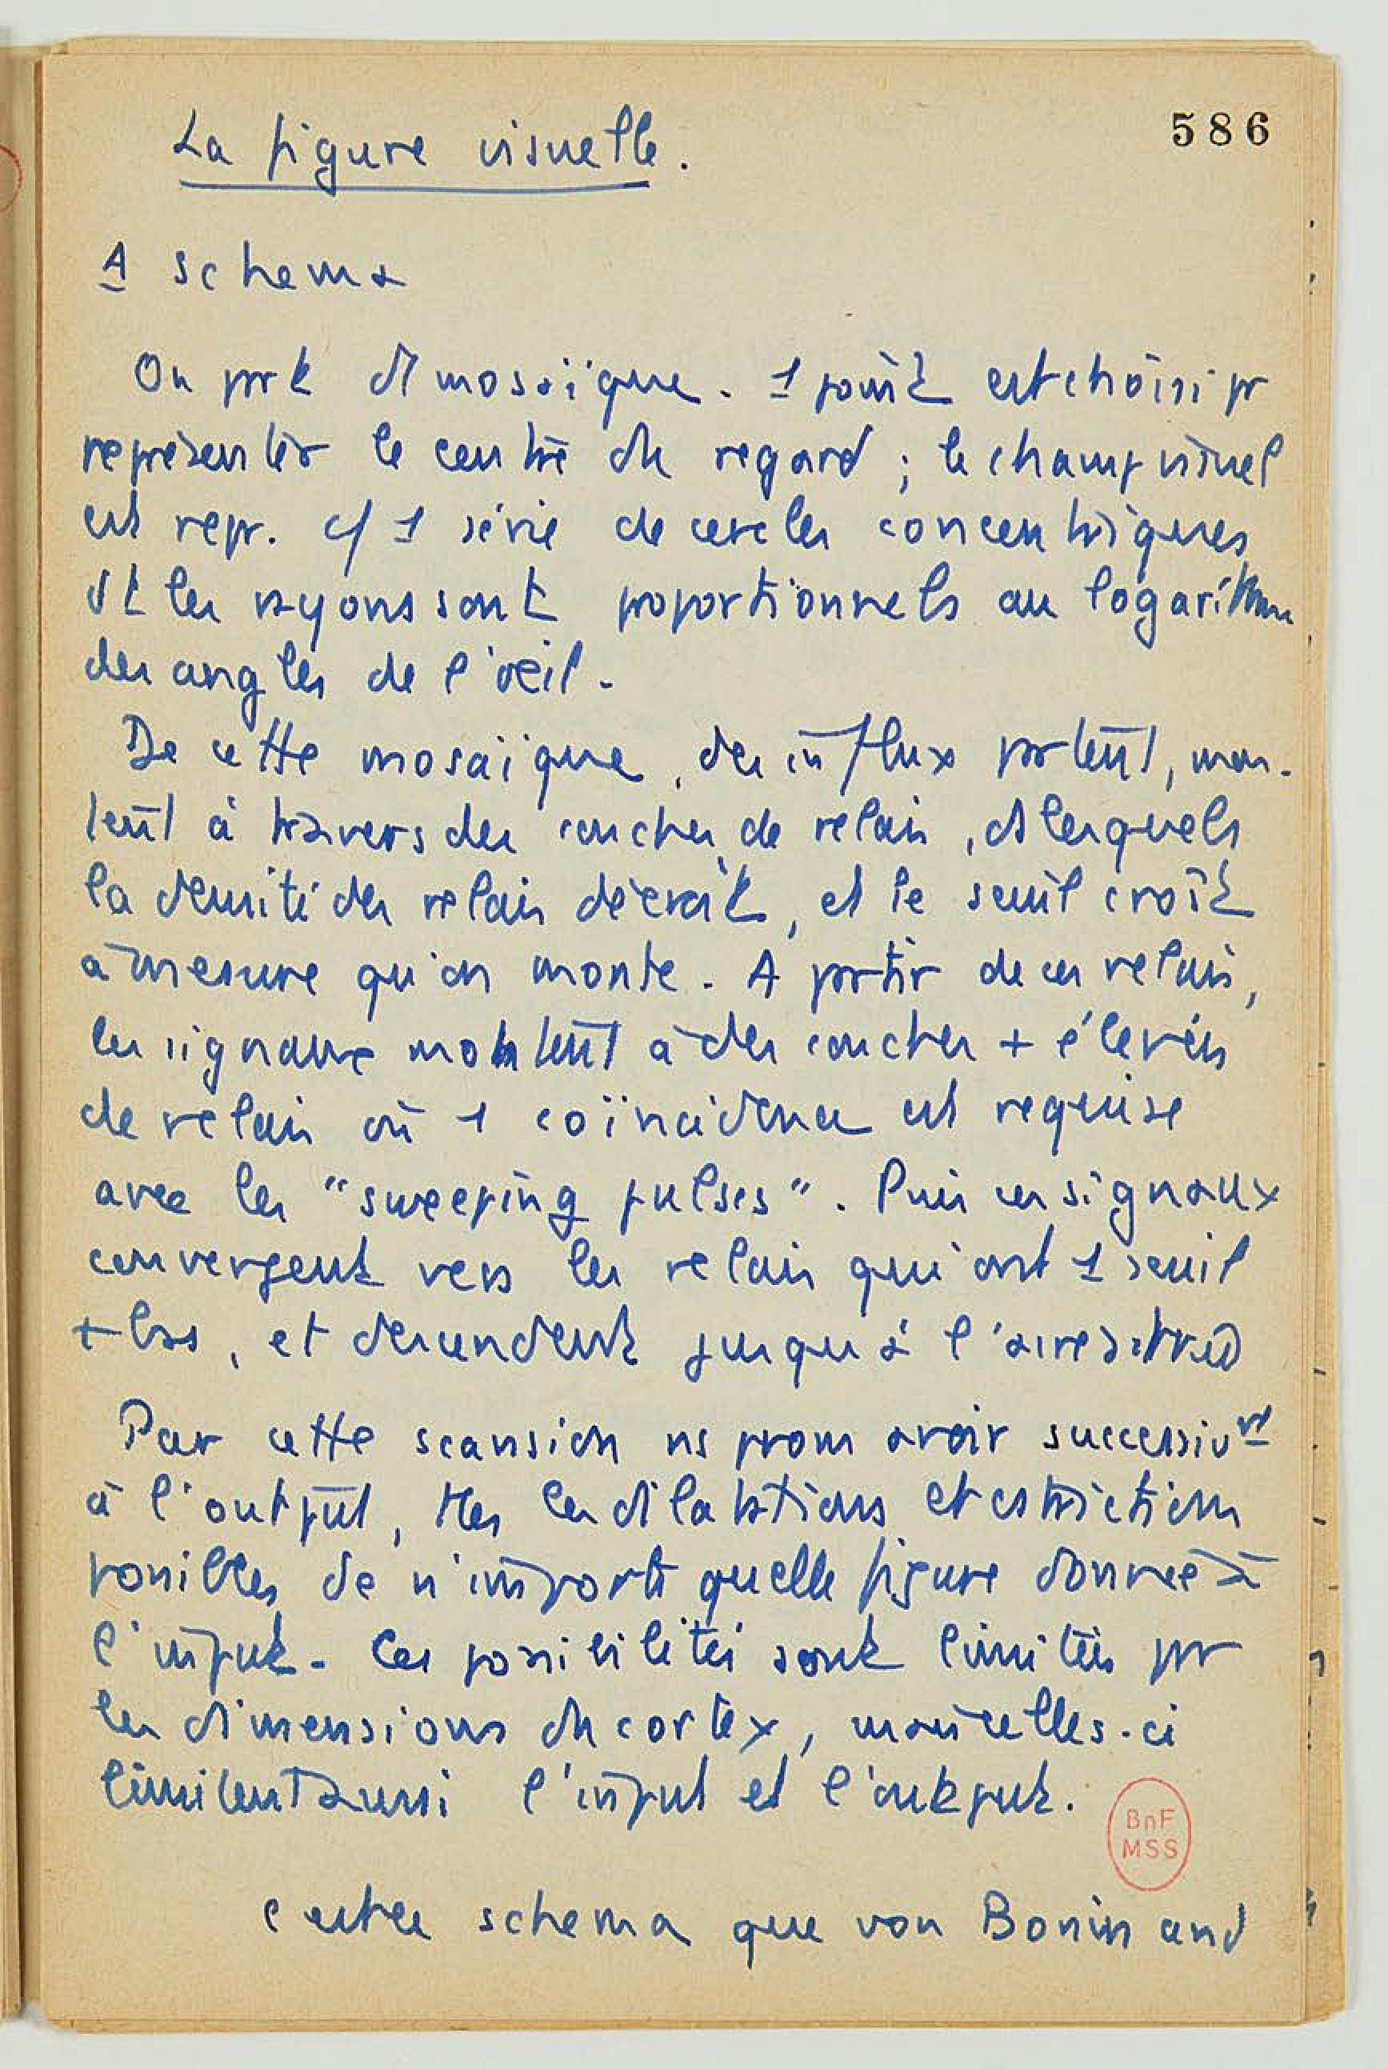 586
La figure visuelle.
A schema
On part d'1 mosaïque. 1 point est choisi pr
représenter le centre du regard ; le champ visuel
est repr. c/ 1 série de cercles concentriques
dt les rayons sont proportionnels au logarithme
des angles de l'œil.
De cette mosaïque, des influx partent, mon-
tent à travers des couches de relais, ds lesquels
la densité des relais décroît, et le seuil croît
à mesure qu'on monte. A partir de ces relais,
les signaux montent à des couches + élevées
de relais où 1 coïncidence est requise
avec les "sweeping pulses". Puis ces signaux
convergent vers les relais qui ont 1 seuil
+ bas, et descendent jusqu'à l'aire striée
Par cette scansion ns pvons avoir successivt
à l'output, ttes les dilatations et cstrictions
possibles de n'importe quelle figure donnée à
l'input. Ces possibilités sont limitées pr
les dimensions du cortex, mais celles-ci
limitent aussi l'input et l'output.
BnF
MSS
C'est ce schema que von Bonin and